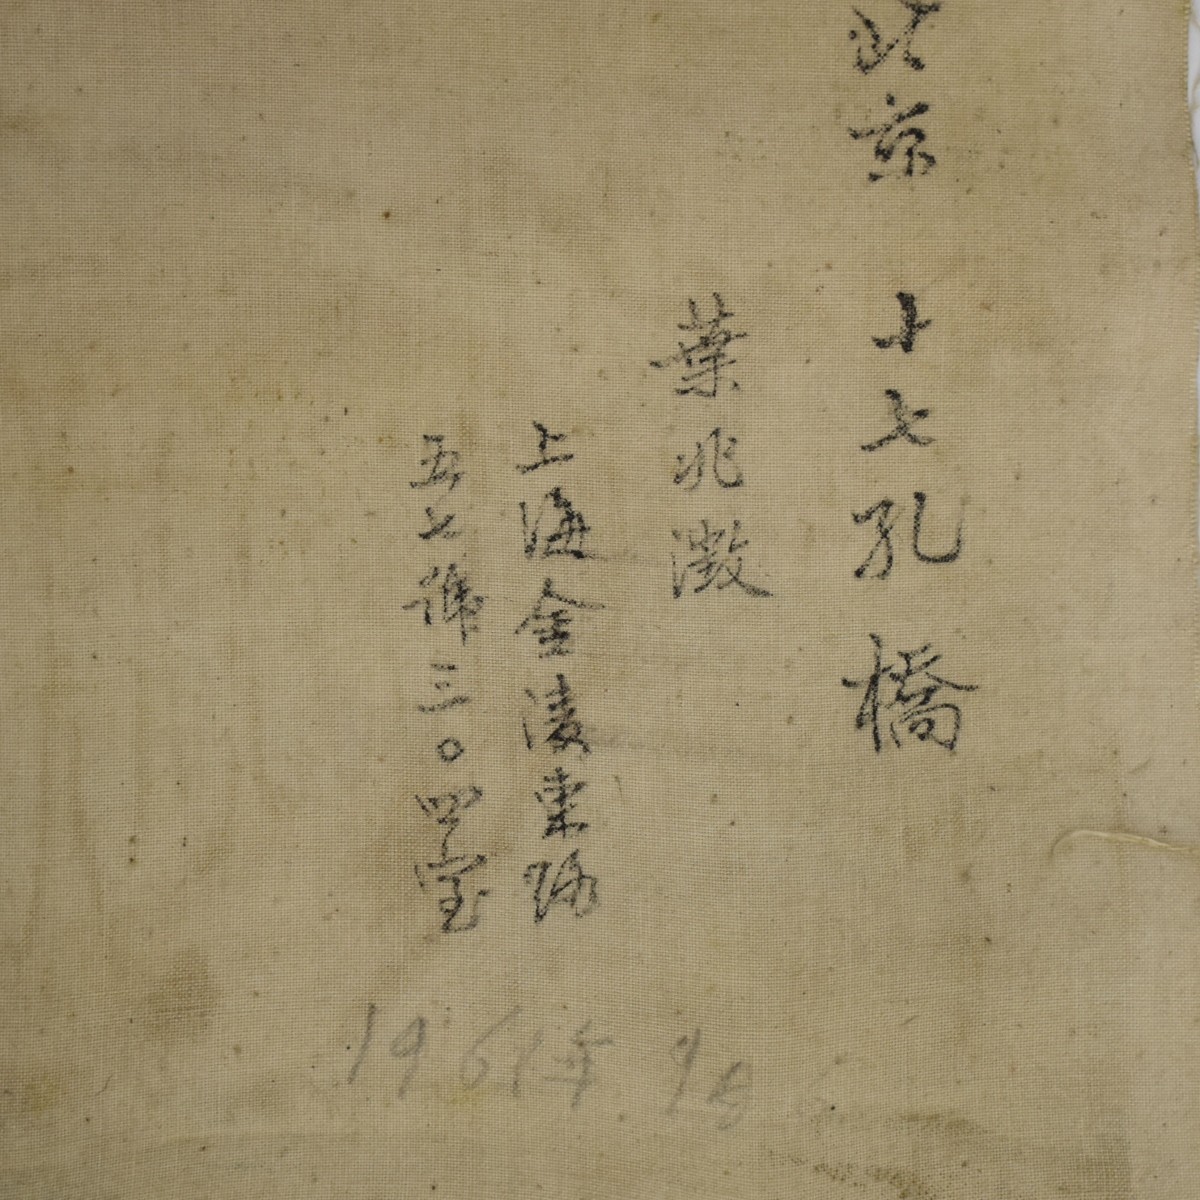 北京 十七孔橋
葉兆澂
上海金陵東路
五七號三〇四室
1961年